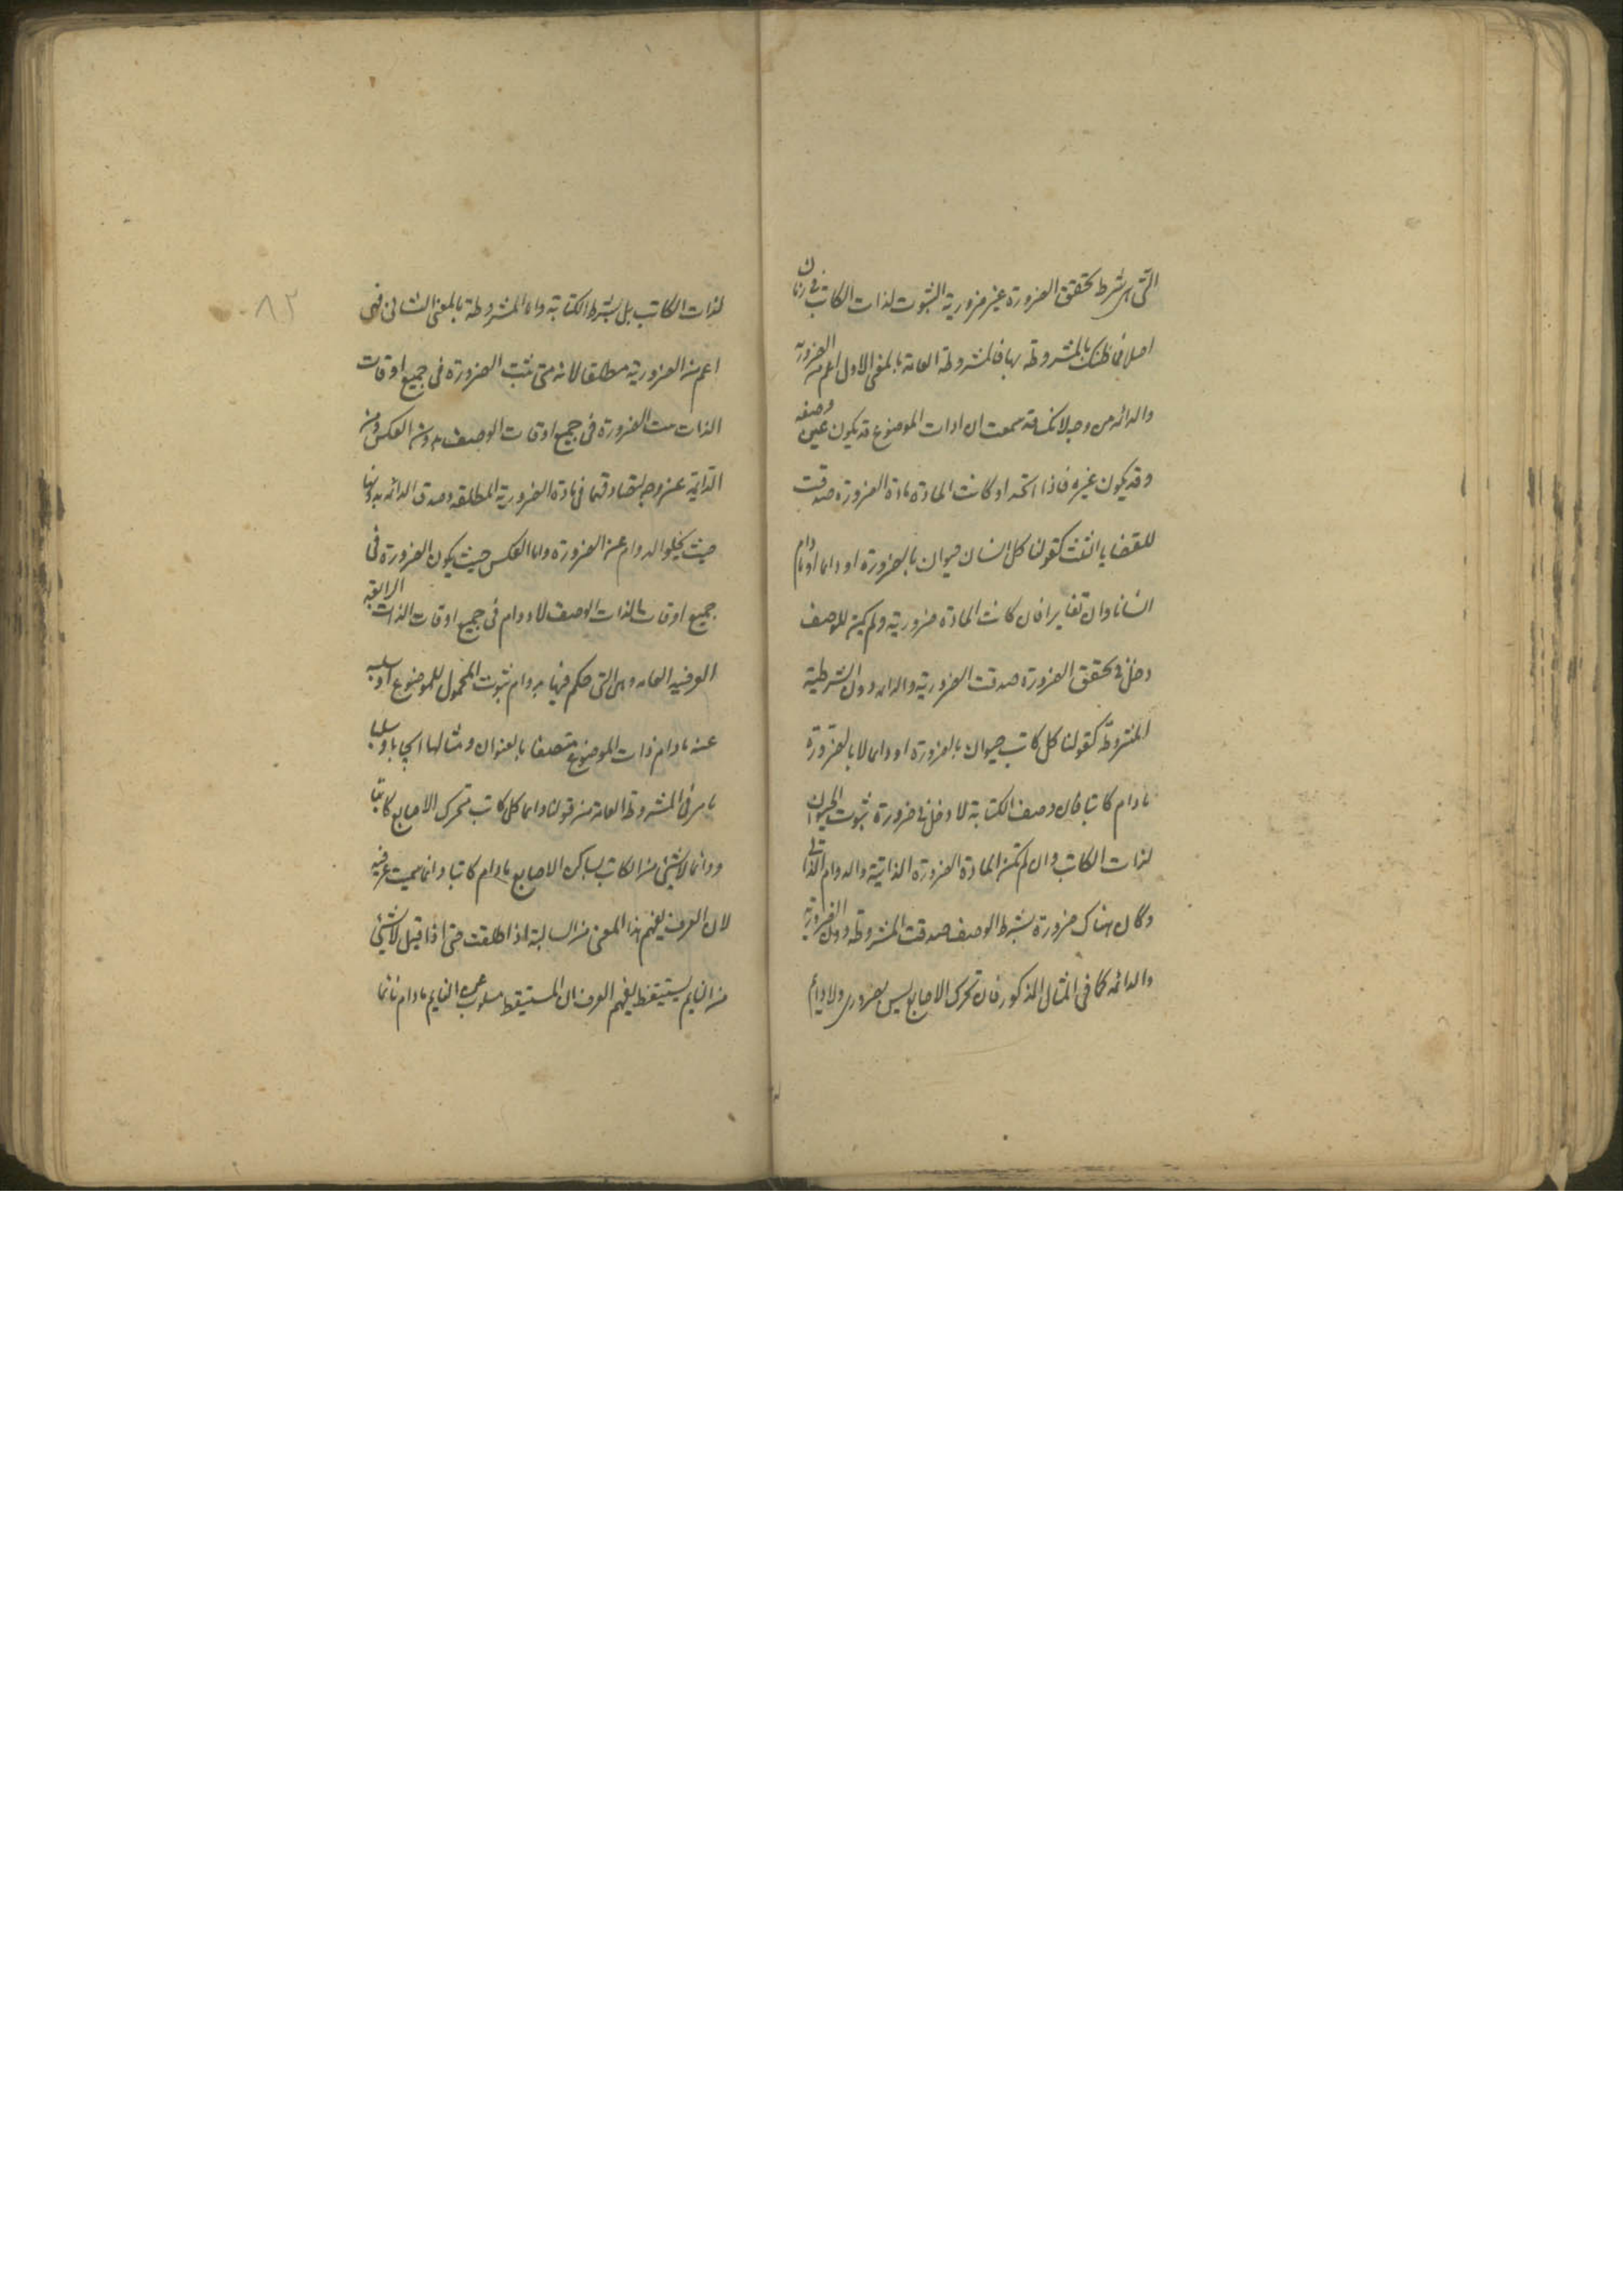 التی هی شرط تحقق الضرورة غیر ضروریة الثبوت لذات الکاتب فی زمان
اصلا فما ظنک بالمشروطة بها فالمشروطة العامة بالمعنی الاول اعم من الضروریة
والدائمه من وجه لانک قد سمعت ان ذات الموضوع قد یکون عین وصفه
وقد یکون غیره فاذا اتحدا وکانت المادة مادة الضرورة صدقت
القضایا الثلث کقولنا کل انسان حیوان بالضرورة او دایما او مادام
انسانا وان تغایرا فان کانت المادة ضروریة ولم یکن للوصف
دخل فی تحقق الضرورة صدقت الضروریة والدایمه دون الشرطیة
المشروطة کقولنا کل کاتب حیوان بالضرورة او دایما لا بالضرورة
مادام کاتبا فان وصف الکتابة لا دخل فی ضرورة ثبوت الحیوان
لذات الکاتب وان لم تکن المادة الضرورة الذاتیة والدوام الذاتی
وکان هناک ضرورة بشرط الوصف صدقت المشروطة دون الضروریة
والدائمه کما فی المثال المذکور فان تحرک الاصابع لیس بضروری ولا دوام
لذات الکاتب بل بشرط الکتابة واما المشروطة بالمعنی الثانی فهی
اعم من الضروریة مطلقا لانه متی ثبت الضرورة فی جمیع اوقات
الذات ثبت الضرورة فی جمیع اوقات الوصف بدون العکس ومن
الدایمة من وجه لتصادقهما فی مادة الضروریة المطلقه وصدق الدائمه بدونها
حیث یخلو الدوام عن الضرورة واما العکس حیث یکون الضرورة فی
جمیع اوقات الذات الوصف لا دوام فی جمیع اوقات الذات الرابعة
العرفیه العامه وهی التی حکم فیها بدوام ثبوت المحمول للموضوع او سلبه
عنه مادام ذات الموضوع متصفا بالعنوان ومثالها ایجابا وسلبا
ما مر فی المشروطة العامة من قولنا دایما کل کاتب متحرک الاصابع مادام کاتبا
ودائما لا شیئ من الکاتب بساکن الاصابع مادام کاتبا وانما سمیت عرفیه
لان العرف یفهم هذا المعنی من السالبة اذا اطلقت حتی اذا قیل لا شیئ
من النایم بمستیقظ یفهم العرف ان المستیقظ مسلوب عن النایم مادام نائما
۸۲